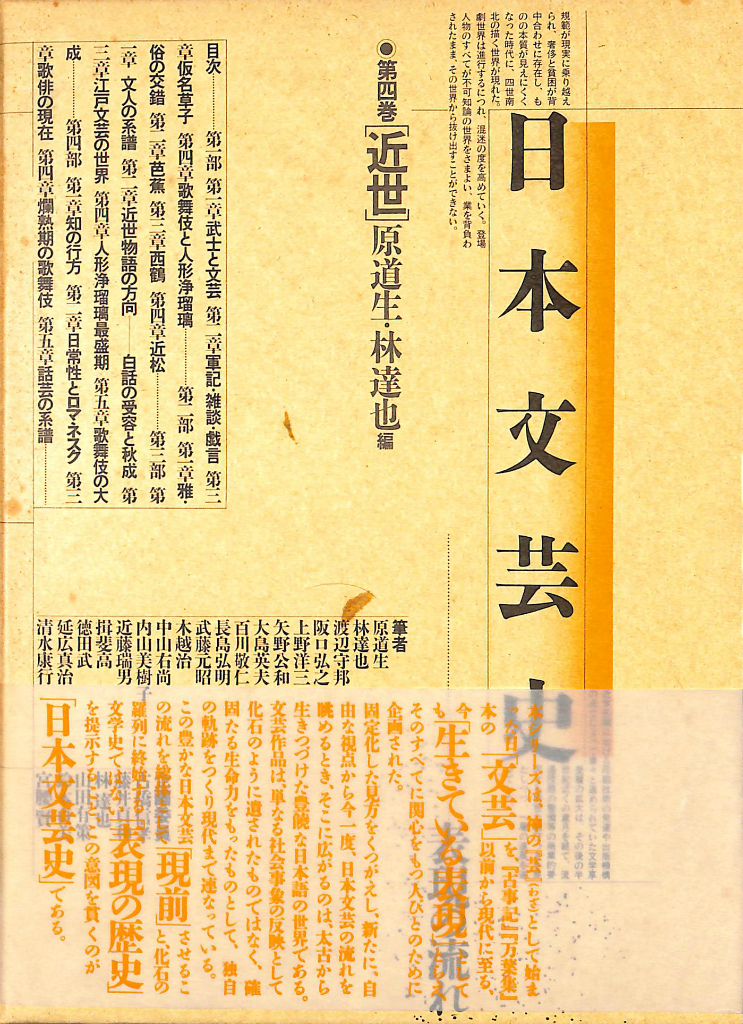 規範が現実に乗り越え
られ、奢侈と貧困が背
中合わせに存在し、も
のの本質が見えにくく
なった時代に、四世南
北の描く世界が現れた。
劇世界は進行するにつれ、混迷の度を高めていく。登場
人物のすべてが不可知論の世界をさまよい、業を背負わ
されたまま、その世界から抜け出すことができない。
日本文芸史
●第四巻[近世]原道生・林達也編
目次……第一部 第一章武士と文芸 第二章軍記・雑談・戯言 第三
章仮名草子 第四章歌舞伎と人形浄瑠璃……第二部 第一章雅・
俗の交錯 第二章芭蕉 第三章西鶴 第四章近松……第三部 第
一章 文人の系譜 第二章近世物語の方向――白話の受容と秋成 第
三章江戸文芸の世界 第四章人形浄瑠璃最盛期 第五章歌舞伎の大
成……第四部 第一章知の行方 第二章日常性とロマ・ネスク 第三
章歌俳の現在 第四章爛熟期の歌舞伎 第五章話芸の系譜……
筆者
原道生
林達也
渡辺守邦
阪口弘之
上野洋三
矢野公和
大島英夫
百川敬仁
長島弘明
武藤元昭
木越治
中山右尚
内山美樹子
近藤瑞男
揖斐高
徳田武
延広真治
清水康行
本シリーズは、神の「芸」(わざ)として始ま
った日本の「文芸」を、『古事記』『万葉集』
以前から現代に至る、今
も「生きている表現」
そのすべてに関心をもつ人びとのために
企画された。
固定化した見方をくつがえし、新たに、自
由な視点から今一度、日本文芸の流れを
眺めるとき、そこに広がるのは、太古から
生きつづけた豊饒な日本語の世界である。
文芸作品は、単なる社会事象の反映として
化石のように遺されたものではなく、確
固たる生命力をもったものとして、独自
の軌跡をつくり現代まで連なっている。
この豊かな日本文芸
の流れを「現前」させるこ
と、化石の羅列に終始
文学史で「表現の歴史」
を提示すること、この意図を貫くのが
「日本文芸史」である。